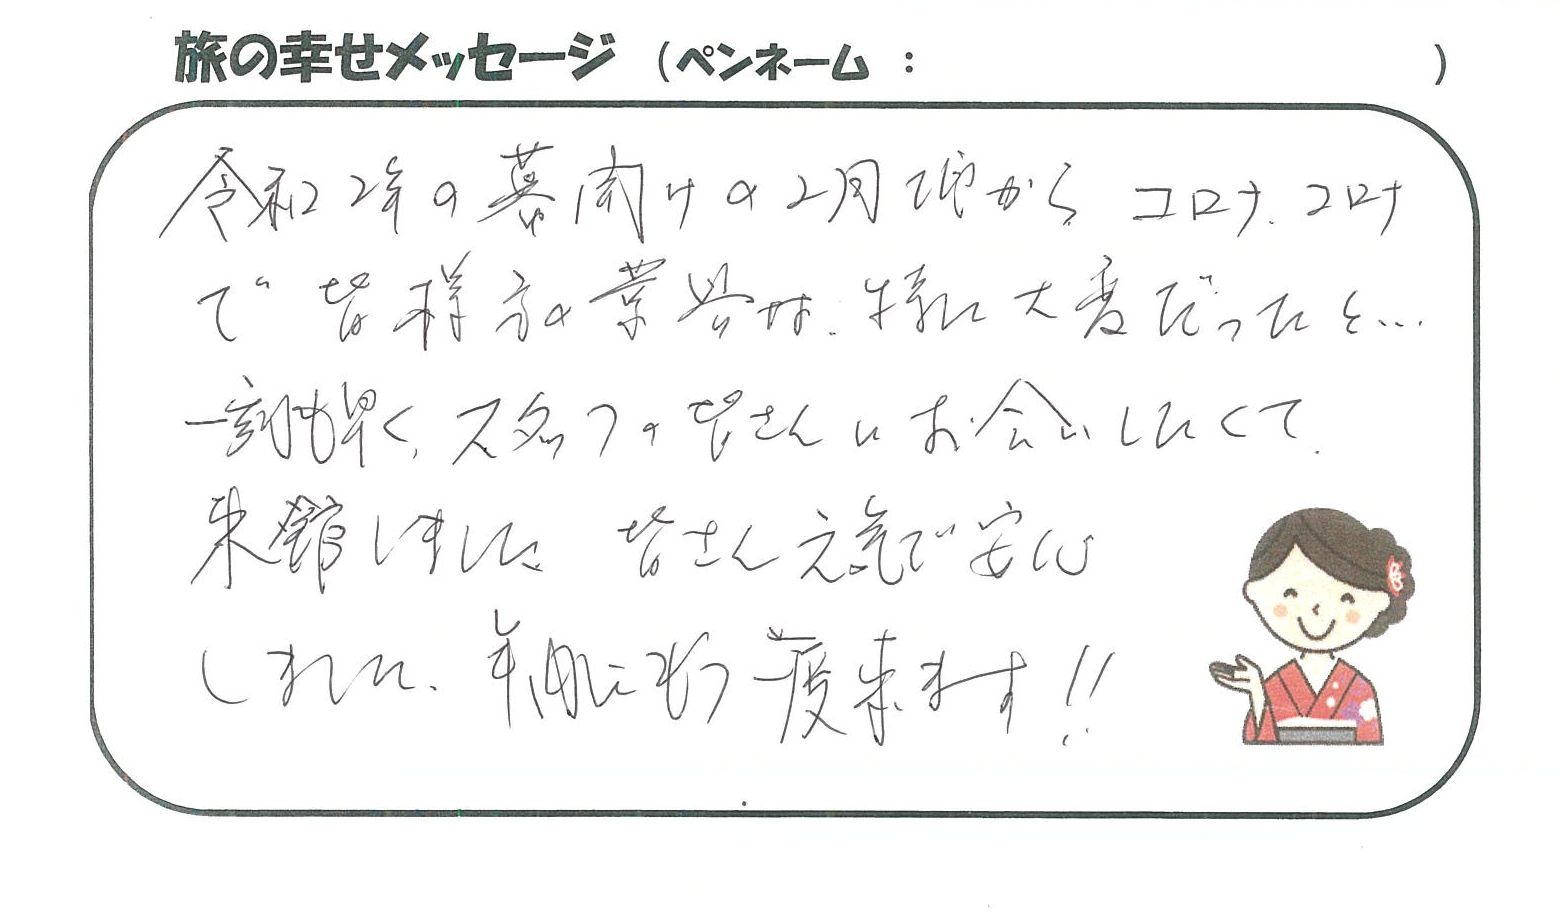 旅の幸せメッセージ (ペンネーム : )
令和2年の幕開けの2月頃から コロナ、コロナ
で 皆様方の業界は、特に大変だったと…
一刻も早く、スタッフの皆さんにお会いしたくて、
来館しました 皆さん元気で安心
しました、年内にもう一度来ます!!